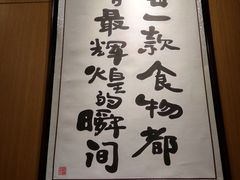 每一款食物都
有最辉煌的瞬间